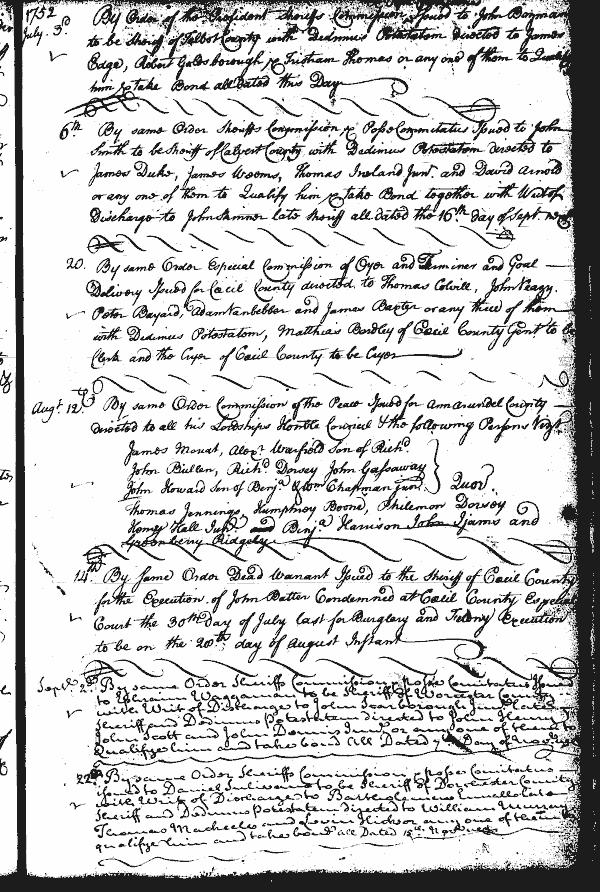 1752
July 3d By Order of the President Sheriffs Commission Issued to John Bozman
to be Sheriff of Talbot County with Dedimus Potestatem directed to James
Edge, Robert Goldsborough & Tristram Thomas or any one of them to Qualify
him & take Bond all dated this Day
6th By same Order Sheriffs Commission & Posse Comitatus Issued to John
Smith to be Sheriff of Calvert County with Dedimus Potestatem directed to
James Duke, James Weems, Thomas Ireland Junr. and David Arnold
or any one of them to Qualify him & take Bond together with Writ of
Discharge to John Skinner late Sheriff all dated the 16th day of Sept. next
20. By same Order Especial Commission of Oyer and Terminer and Goal
Delivery Issued for Cecil County directed to Thomas Colvill, John Veazy.
Peter Bayard, Adam Vanbebber and James Baxter or any three of them
with Dedimus Potestatem, Matthias Bordley of Cecil County Gent. to be
Clerk and the Cryer of Cecil County to be Cryer
Augt. 12. By same Order Commission of the Peace Issued for Ann Arundel County
directed to all his Lordships Honble Council & the following Persons Vizt
James Mouat, Alexr. Warfield Son of Richd.
John Bullen, Richd. Dorsey John Gassaway
John Howard Son of Benja. & Wm. Chapman Junr. } Quor.
Thomas Jennings, Humphrey Boone, Philemon Dorsey
Henry Hall Junr. and Benja. Harrison John Ijams and
Greenberry Ridgely
14th By same Order Dead Warrant Issued to the Sheriff of Cecil County
for the Execution of John Batter Condemned at Cecil County Especial
Court the 30th day of July last for Burglary and Felony Execution
to be on the 20th day of August Instant
Septr. 2d By same Order Sheriffs Commission, Posse Comitatus Issued
to William Waggaman to be Sheriff of Worcester County
with Writ of Discharge to John Scarborough Junr. late
Sheriff and Dedimus Potestatem directed to John Henry
John Scott and John Dennis Junr. or any one of them to
Qualify him and take bond All Dated Day of
22d By same Order Sheriffs Commission, Posse Comitatus
issued to Daniel Sulivane to be Sheriff of Dorchester County
with Writ of Discharge to Bartholomew late
Sheriff and Dedimus Potestatem directed to William Murray
Thomas Mackeele and Levin Hicks or any one of them to
qualify him and take bond all Dated